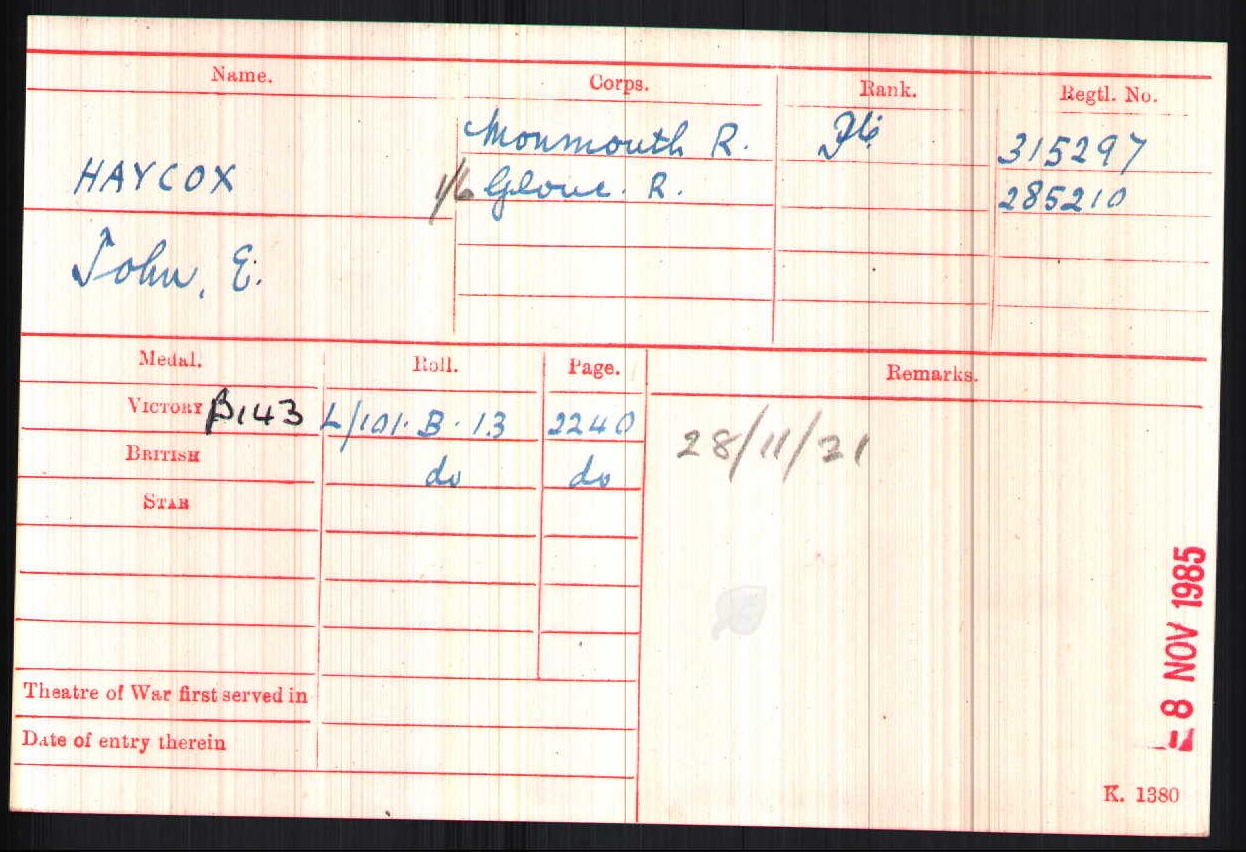 Name. Corps. Rank. Regtl. No.
Monmouth R. Pte 315297
HAYCOX 1/6 Glouc. R. 285210
John, E.
Medal. Roll. Page. Remarks.
VICTORY B143 L/101.B.13 2240
28/11/21
BRITISH do do
STAR
8 NOV 1985
Theatre of War first served in
Date of entry therein
K. 1380